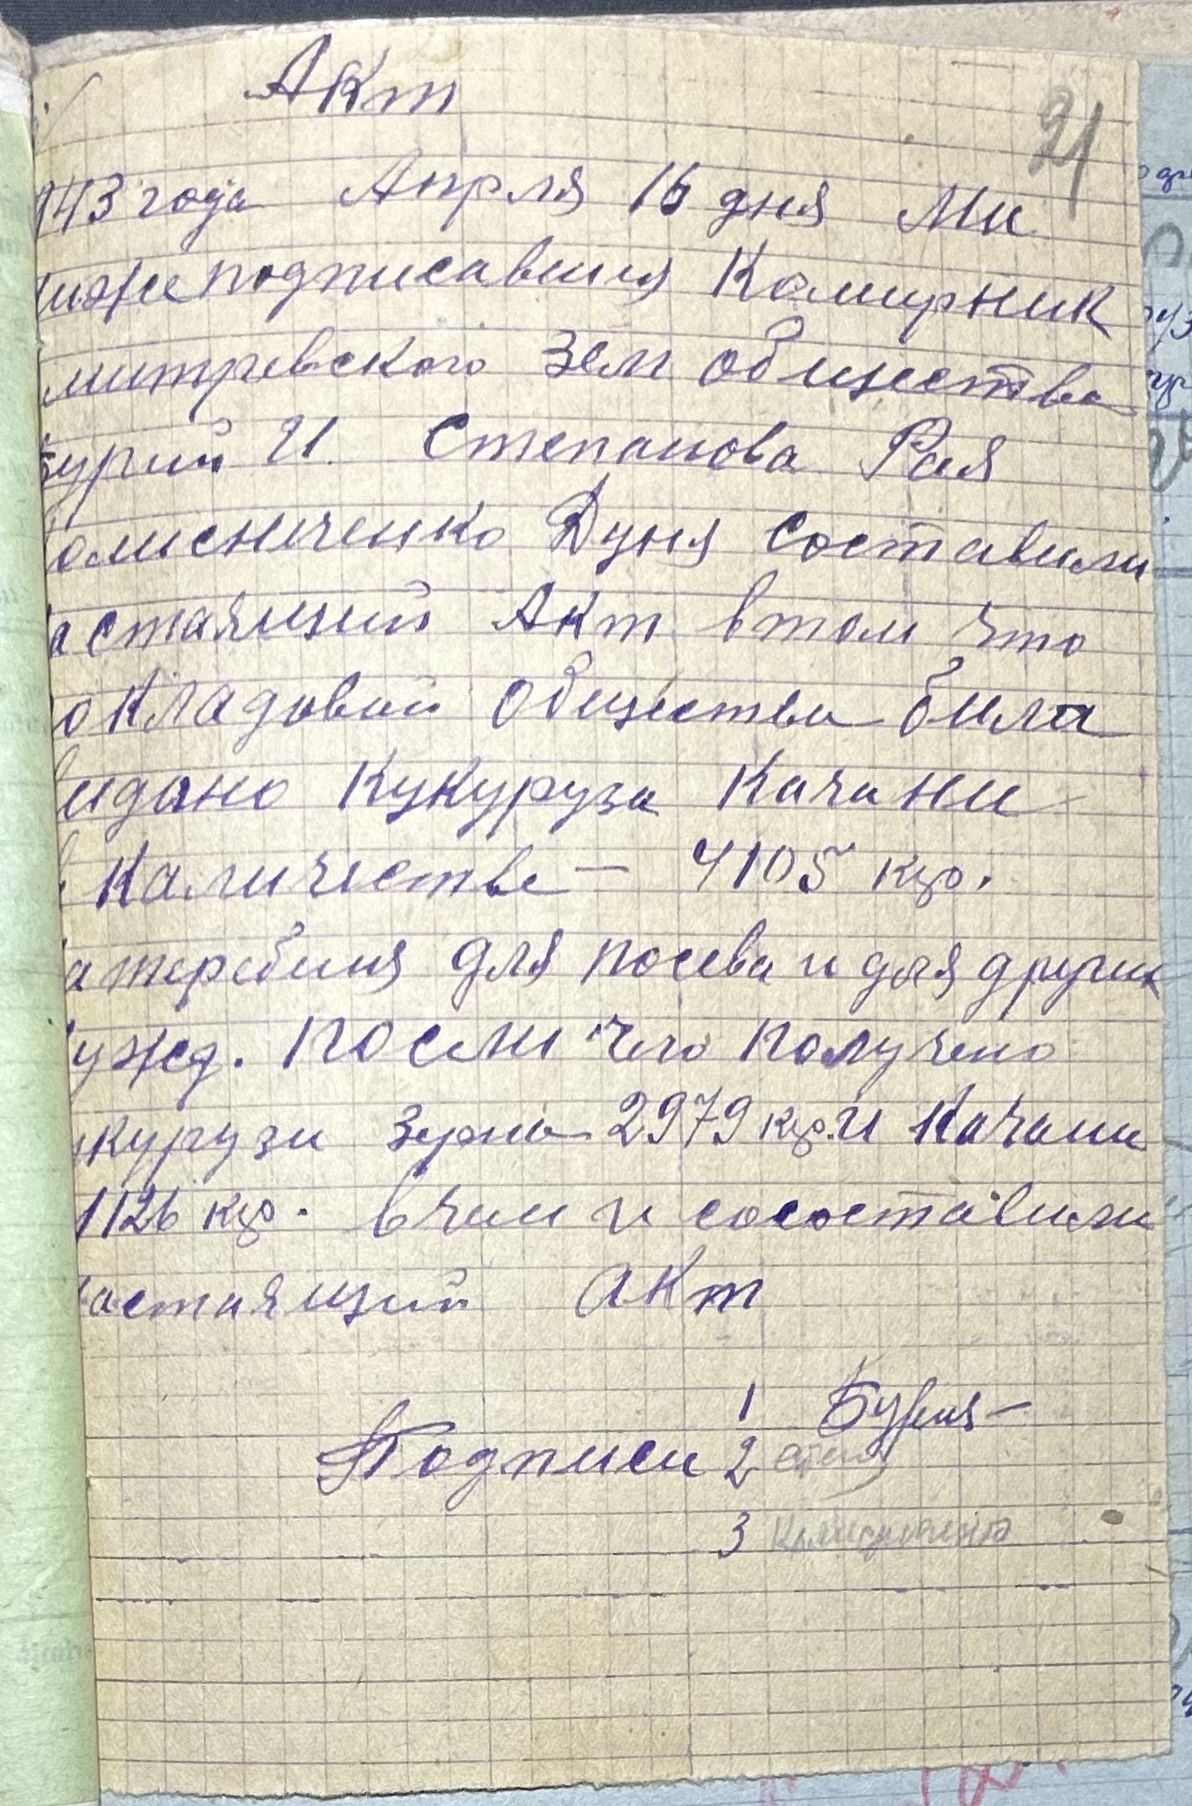 Акт
21
143 года Апрля 16 дня Ми
нижеподписавшия Камирник
митревского Зем общества
Бурий И. Степанова Рая
Колисниченко Дуня составили
настаящий Акт втом что
по кладовой общества била
видано Кукуруза Качани
в Каличестве – 4105 кгр.
на теребиня для посева и для других
нужд. после чего получено
кукурузи зерна 2979 кгр. и Качани
1126 кгр. вчем и сосоставили
настаящий акт
Подписи 1 Бурия
2
3 Колисниченко